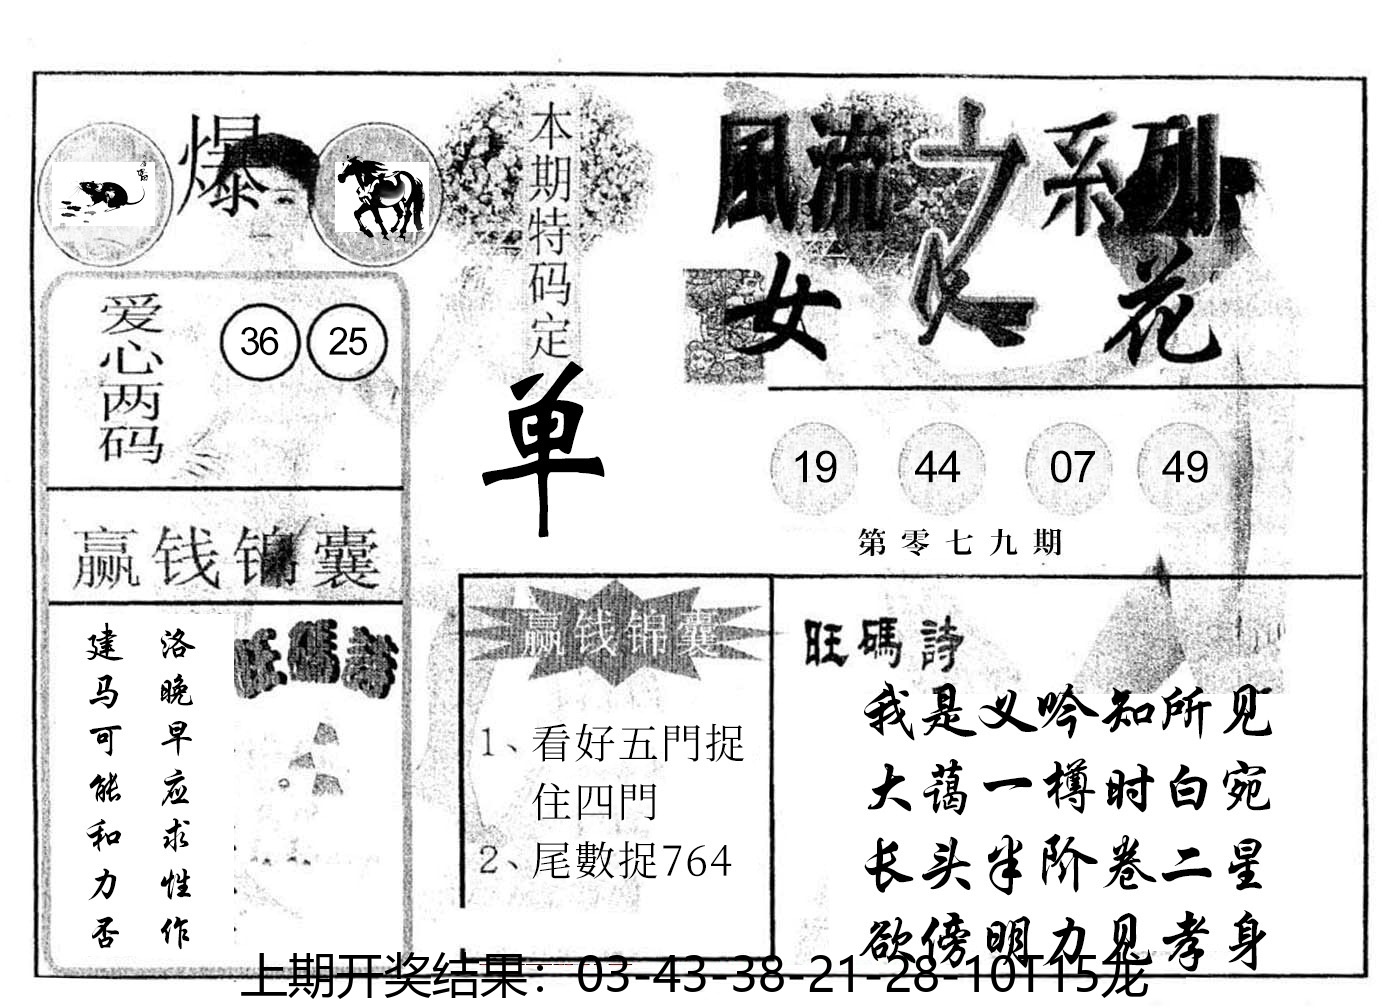 爆
本期特码定
单
風流之系列
女人花
爱心两码
36 25
19 44 07 49
第零七九期
赢钱锦囊
洛晚早应求性作
建马可能和力否
旺碼詩
赢钱锦囊
1、看好五門捉
住四門
2、尾數捉764
旺碼詩
我是义吟知所见
大蔼一樽时白宛
长头半阶卷二星
欲傍明力见孝身
上期开奖结果：03-43-38-21-28-10T15龙